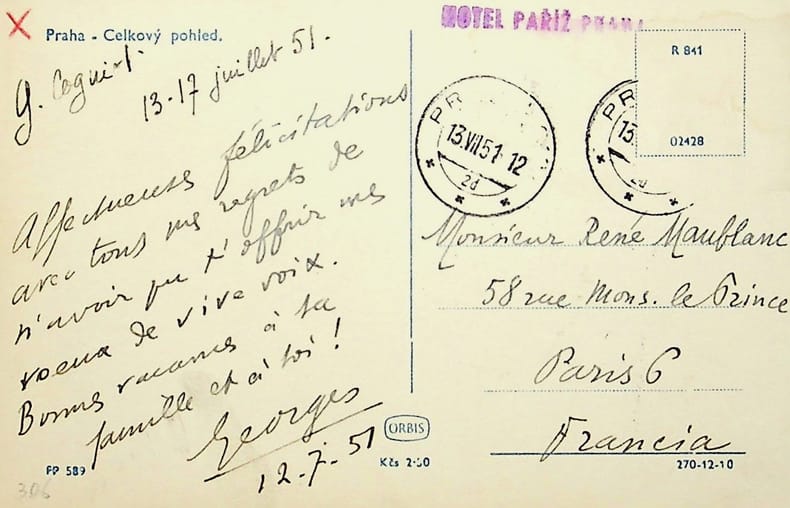 Praha - Celkový pohled.
HOTEL PAŘÍŽ PRAHA
G. Cogniot
13-17 juillet 51.
Affectueuses félicitations
avec tous mes regrets de
n'avoir pu t'offrir mes
voeux de vive voix.
Bonnes vacances à ta
famille et à toi !
Georges
12-7-51
R 841
02428
PR
13.VII.51-12
2d
PR
13.
2d
Monsieur René Maublanc
58 rue Mons. le Prince
Paris 6
Francia
ORBIS
FP 589
Kčs 2·50
270-12-10
306